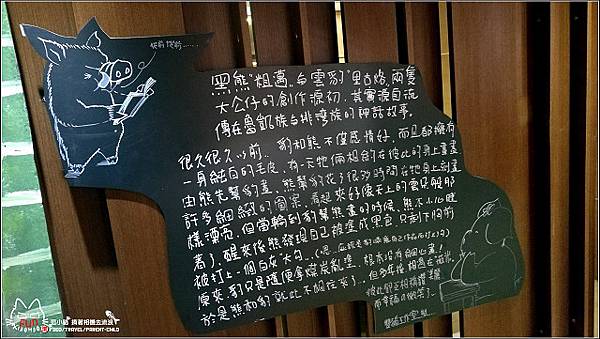 從前從前......
黑熊"粗邁"與雲豹"里古烙"兩隻
大公仔的創作源初，其實源自流
傳在魯凱族與排灣族的神話故事。
很久很久以前，豹和熊不僅感情好，而且都擁有
一身純白的毛皮，有一天牠倆相約在彼此的身上畫畫
由熊先幫豹畫，熊幫豹花了很多時間在牠身上刻畫
許多細緻的圖案，看起來好像天上的雲朵般那
樣漂亮，但當輪到豹幫熊畫的時候，熊不小心睡
著了，醒來後熊發現自己被塗成黑色，只剩下胸前
被打上一個白灰大勾，
原來豹只是隨便拿煤炭亂塗，根本沒有用心畫！
於是熊和豹就此不相往來了...，但多年後 相遇在
彼此卻互相稱讚美麗
而幸福的微笑了～
FOOD/TRAVEL/PARENT-CHILD